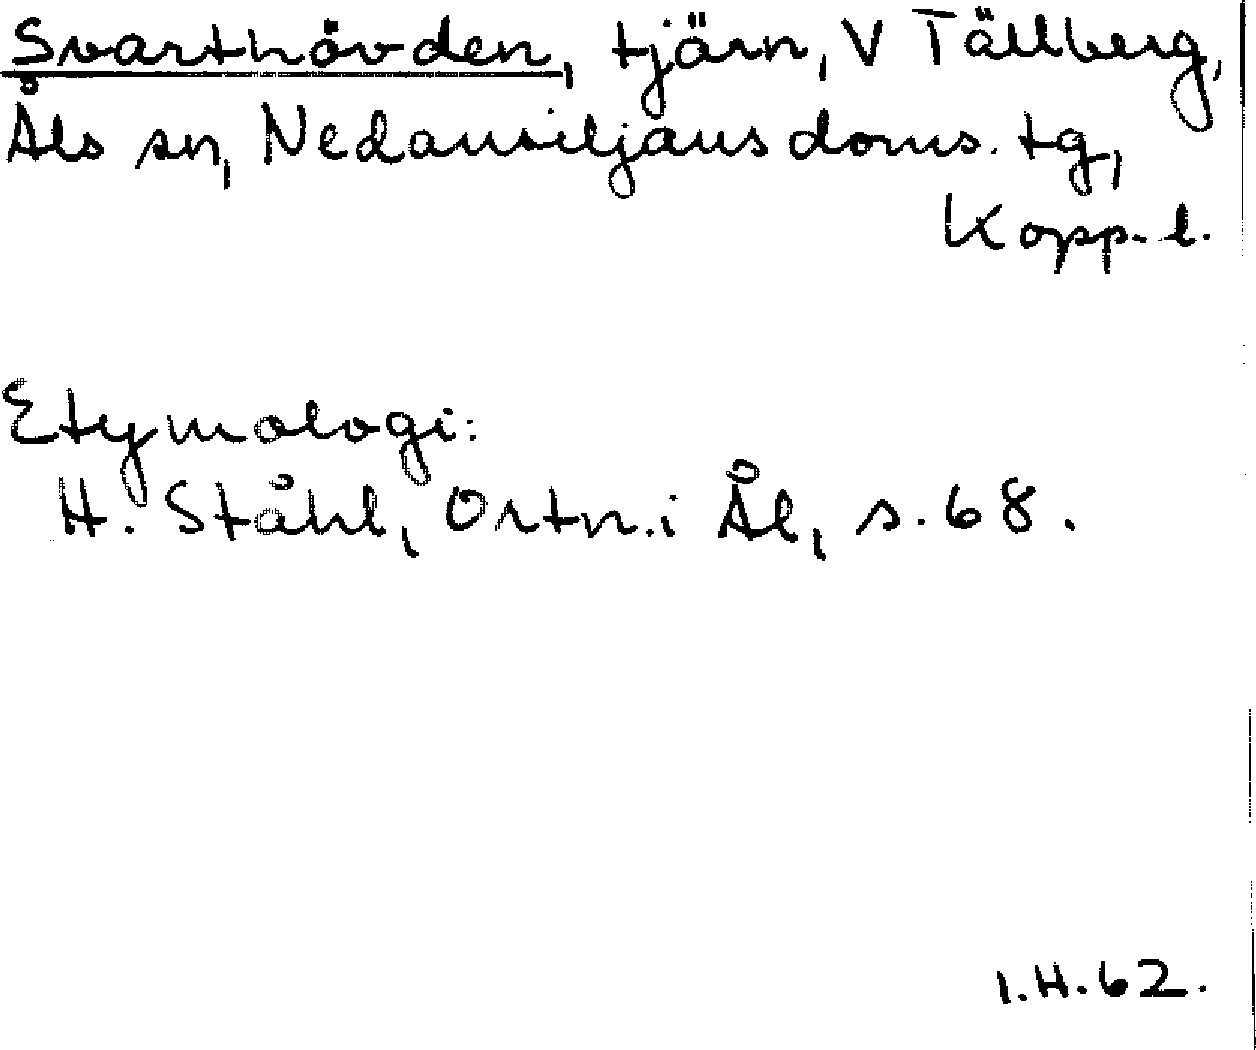 Svarthövden, tjärn, V Tällberg,
Åls sn, Nedansiljans doms. tg,
Kopp. l.
Etymologi:
H. Ståhl, Ortn. i Ål, s. 68.
I.H. 62.